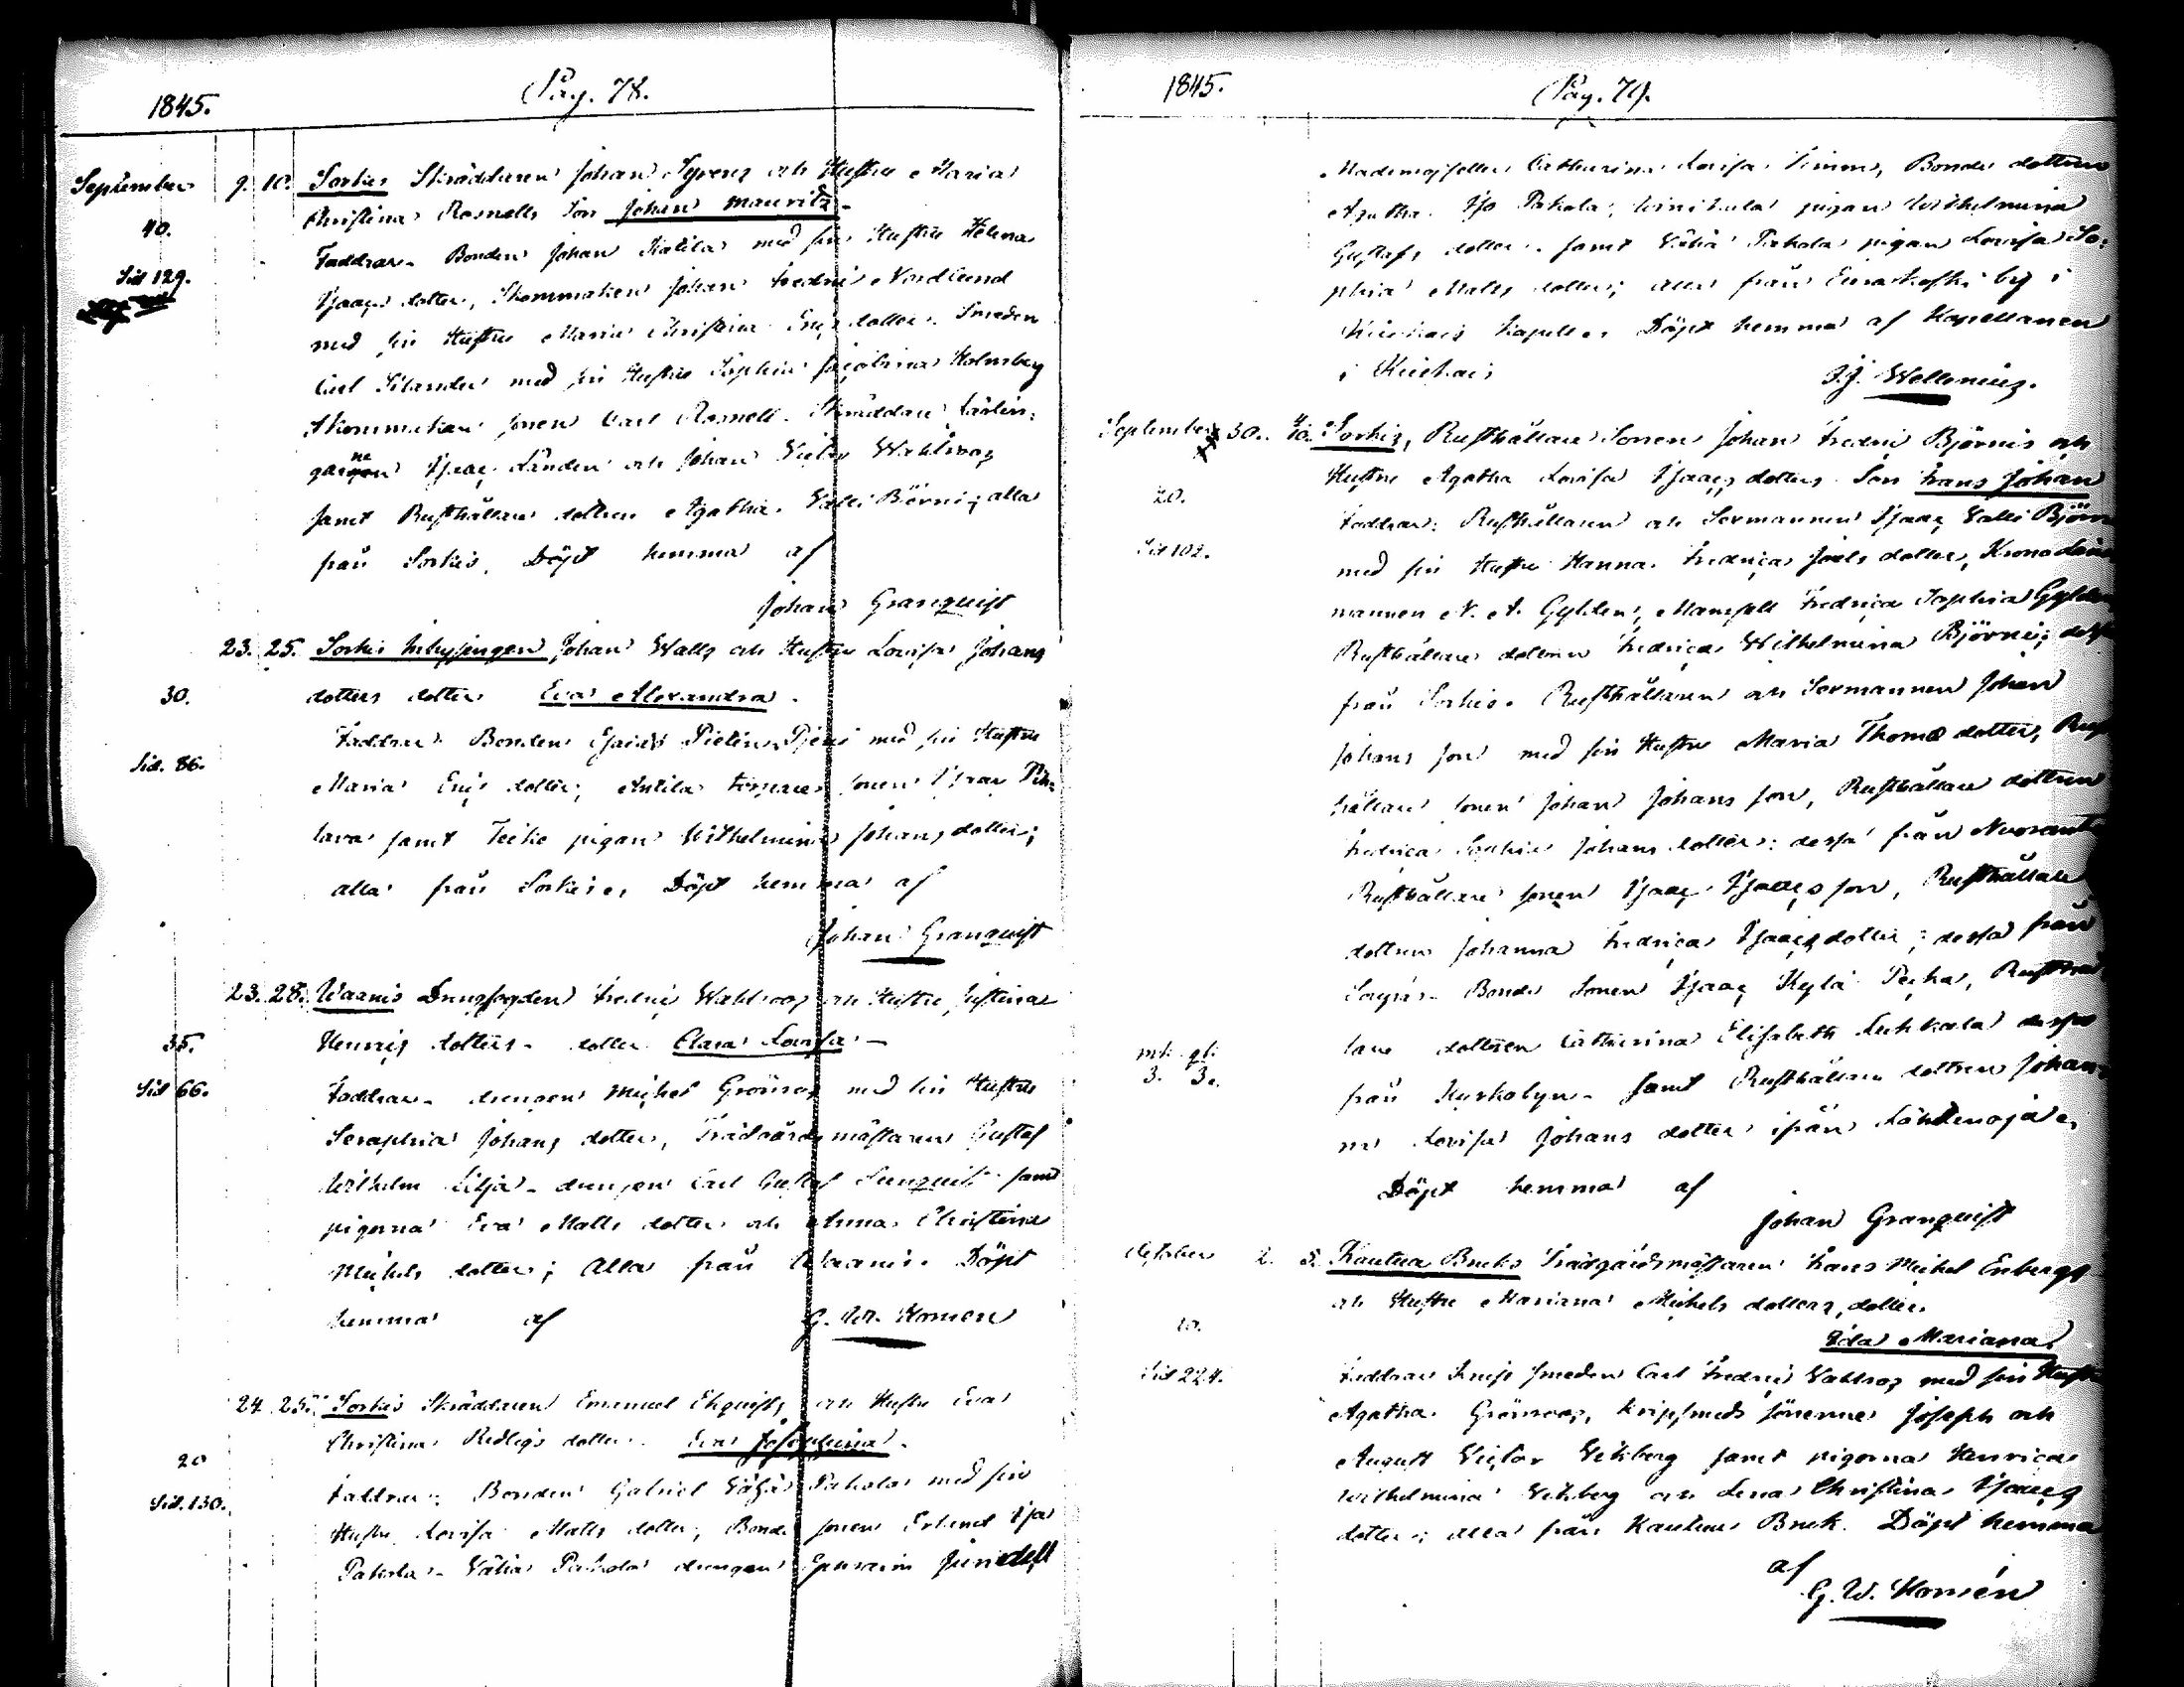 1845.
Pag. 78.
September 9. 10. Sorkis Skräddaren Johan Syrens och Hustru Maria
Christina Rosnells Son Johan Mauritz
40.
Faddrar Bonden Johan Katila med sin Hustru Helena
Sid 129.
Isaacs dotter, Skommakren Johan Fredric Nordlund
med sin Hustru Maria Christina Erics dotter. Smeden
Carl Silander med sin Hustru Sophia Jacobina Holmberg
Skommakare sonen Carl Rosnell. Skräddare
Isaac Linden och Johan Victor Wahlroos
samt Rusthållare dottren Agatha Valli Börni; alla
från Sorkis. Döpt hemma af
Johan Granquist
23. 25. Sorkis Inhysingen Johan Walls och Hustru Lovisa Johans
30.
dotters dotter Eva Alexandra.
Faddrar Bonden Esaias Pietin Pieni med sin Hustru
Sid. 86.
Maria Erics dotter; Anttila sonen
lava samt Teike pigan Wilhelmina Johans dotter;
alla från Sorkis. Döpt hemma af
Johan Granquist
23. 28. Waanis Drängfogden Fredric Wahlroos och Hustru Justina
35.
Henrics dotters dotter Clara Lovisa
Sid 66.
Faddrar drengen Michel Grönroos med sin Hustru
Seraphia Johans dotter, Trädgårdsmästaren Gustaf
Wilhelm Lilja drengen Carl Gustaf samt
pigorna Eva Matts dotter och Anna Christina
Michels dotter; Alla från Waanis. Döpt
hemma af G. W. Homén
24. 25. Sorkis Skräddaren Emanuel Ekquists och Hustru Eva
Christina Redligs dotter. Eva Josephina.
20
Sid. 130.
Faddrar: Bonden Gabriel Vähä Pahola med sin
Hustru Lovisa Matts dotter, Bonde sonen Erland Iso
Pahola Vähä Pahola drengen Ephraim Jundell
1845.
Pag. 79.
Mademoiselle Catharina Lovisa Timm, Bonde dottren
Agatha Iso Pahola, pigan Wilhelmina
Gustafs dotter samt Vähä Pahola pigan Lovisa So-
phia Matts dotter; alla från Eurakoski by i
Kiukais Kapell. Döpt hemma af Kapellanen
i Kiukais J. J. Wellenius.
September 30. Sorkis, Rusthållare Sonen Johan Fredric Björnis och
Hustru Agatha Lovisa Isaacs dotters Son Frans Johan
20.
Faddrar: Rusthållaren och Sexmannen Isaac Valli Björni
Sid 102.
med sin Hustru Hanna Fredrica Joels dotter, Krono Läns
mannen N. A. Gylden, Mamsell Fredrica Sophia Gylden
Rusthållare dottren Fredrica Wilhelmina Björni; dessa
från Sorkis. Rusthållaren och Sexmannen Johan
Johans son med sin Hustru Maria Thomæ dotter, Rust
hållare sonen Johan Johans son, Rusthållare dottren
Fredrica Sophia Johans dotter: dessa från
Rusthållare sonen Isaac Isaacs son, Rusthållare
dottren Johanna Fredrica Isaacs dotter; dessa från
Bonde Sonen Isaac Kylä Pecka, Rusthål
lare dottren Catharina Elisabeth dessa
mk. qk.
3. 3.
från samt Rusthållare dottren Johan-
na Lovisa Johans dotter ifrån
Döpt hemma af
Johan Granquist
October 2. 5. Kauttua Bruks Trädgårdsmästaren Frans Michel Enbergs
och Hustru Mariana Michels dotters, dotter
10.
Ida Mariana
Sid 224.
Faddrar Knip smeden Carl Fredric Wahlroos med sin Hustru
Agatha Grönroos, knipsmeds sönerne Joseph och
August Victor Vikberg samt pigorna Henrica
Wilhelmina Vikberg och Lena Christina Isaacs
dotter; alla från Kauttua Bruk. Döpt hemma
af
G. W. Homén